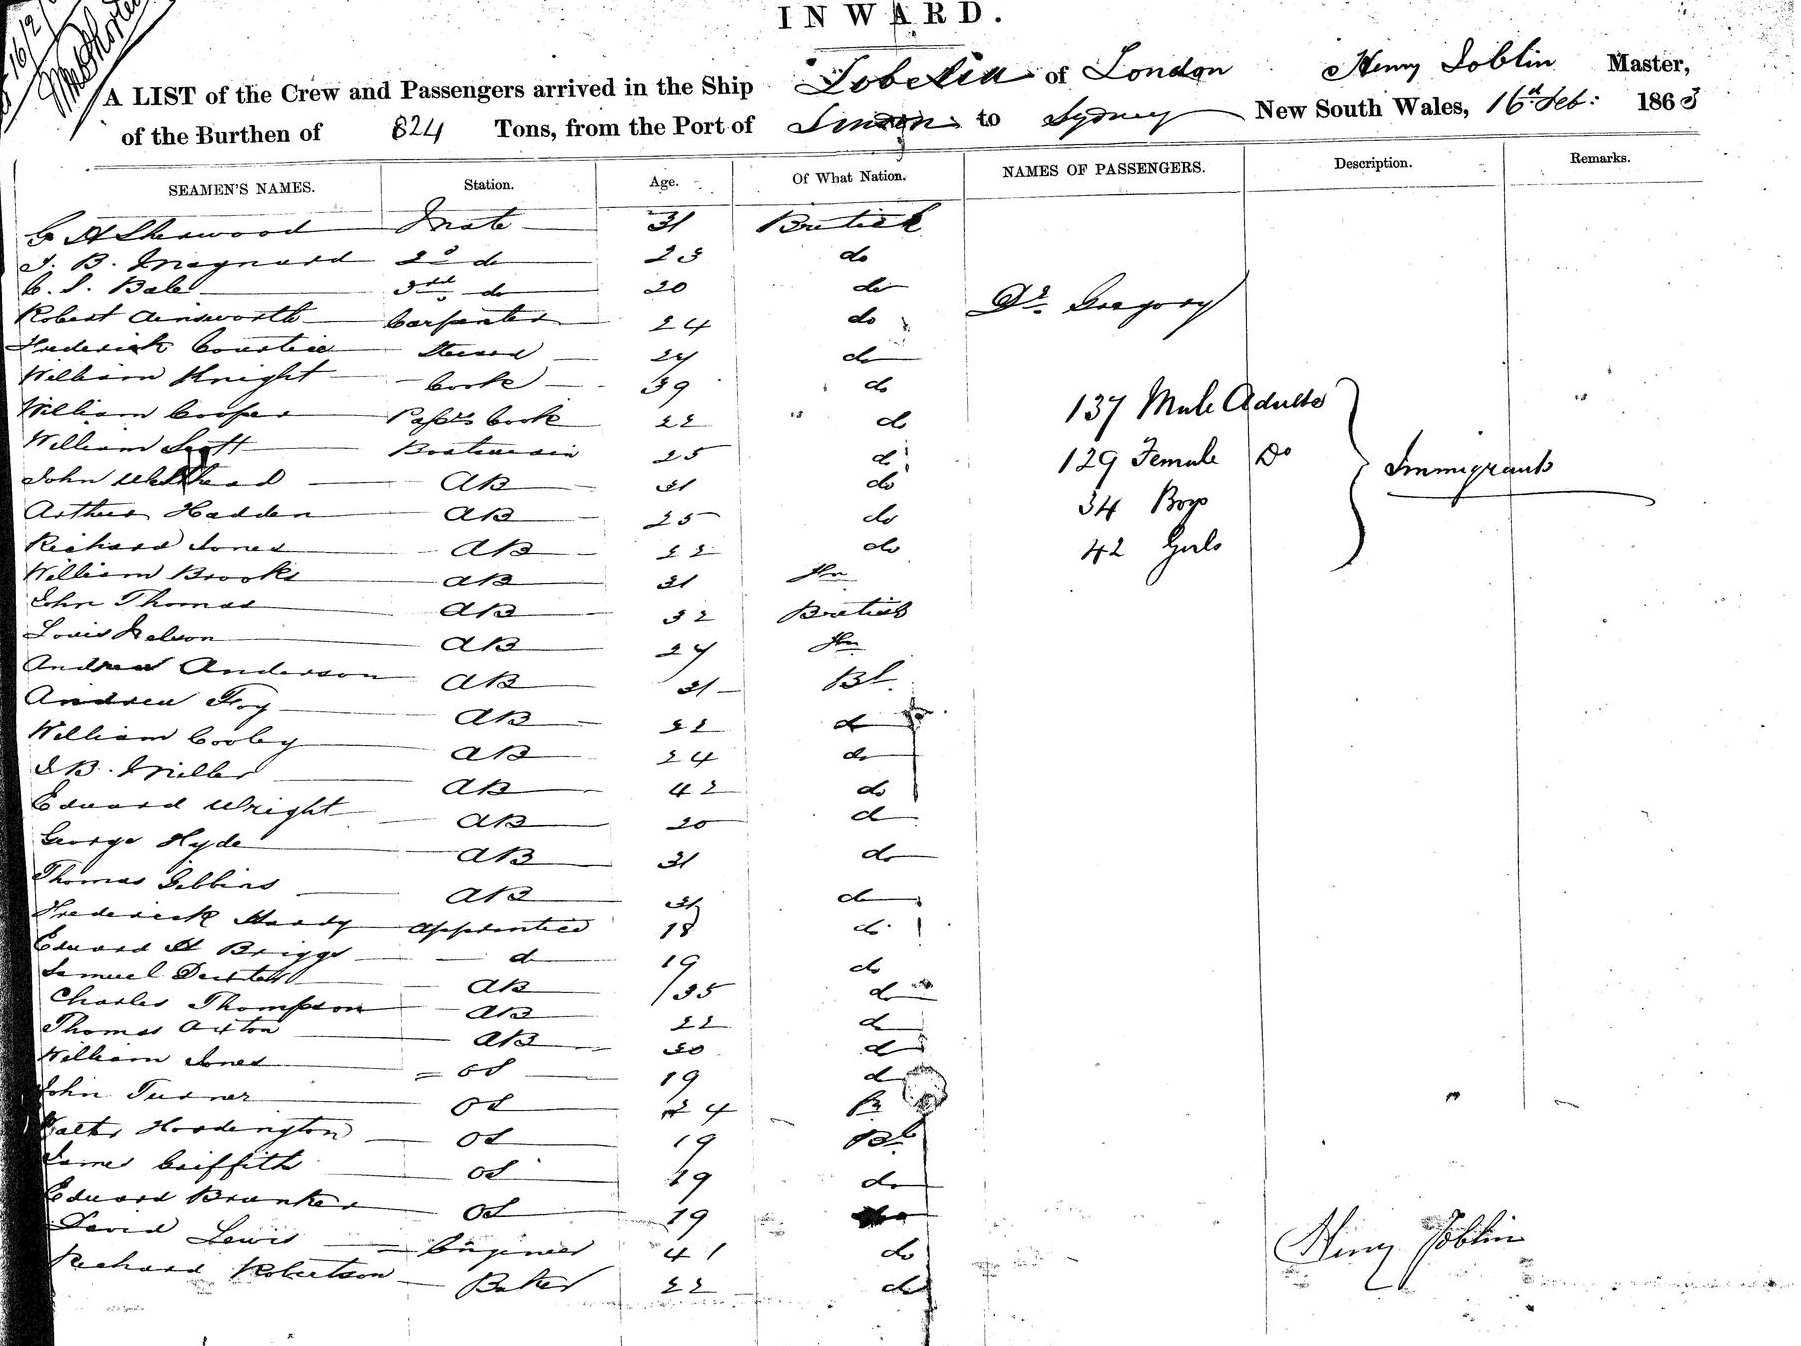 INWARD.
A LIST of the Crew and Passengers arrived in the Ship of London Henry Joblin Master,
of the Burthen of 824 Tons, from the Port of London to Sydney New South Wales, 16th Feb: 1863
SEAMEN'S NAMES. Station. Age. Of What Nation. NAMES OF PASSENGERS. Description. Remarks.
G A Sherwood Mate 31 British
J. B. Maynard 2d do 23 do
C. S. Bale 3rd do 20 do
Dr. Gregory
Robert Ainsworth Carpenter 24 do
Frederick Steward 24 do
William Knight Cook 39 do
137 Male Adults
William Cooper Passrs Cook 22 do
William Scott Boatswain 25 do
129 Female Do Immigrants
John Whithead AB 31 do
34 Boys
Arthur Hadden AB 25 do
Richard Jones AB 22 do
42 Girls
William Brooks AB 31
John Thomas AB 32 British
Louis Nelson AB 24
Andrew Anderson AB 31 Bh
Andrew Foy AB 22 do
William Cooley AB 24 do
J B. Miller AB 42 do
Edward Wright AB 20 do
George Hyde AB 31 do
Thomas Gibbins AB 31 do
Frederick Hardy apprentice 18 do
Edward H Briggs do 19 do
Samuel AB 35 do
Charles Thompson AB 22 do
Thomas Axton AB 30 do
William Jones OS 19 do
John Turner OS 24 B
Walter Hordington OS 19 Bh
James Griffith OS 19 do
Edward Brunker OS 19
David Lewis Engineer 41 do
Richard Robertson Baker 22 do
Henry Joblin